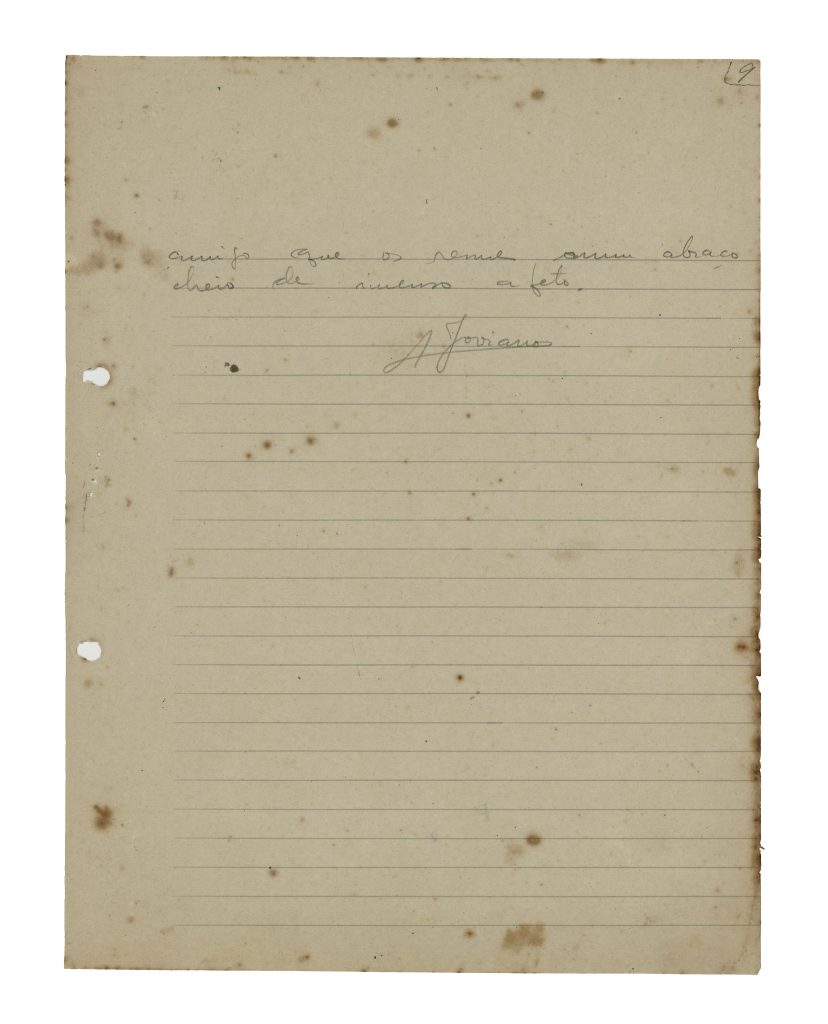 9
amigo que os reune num abraço
cheio de imenso afeto.
A Joviano